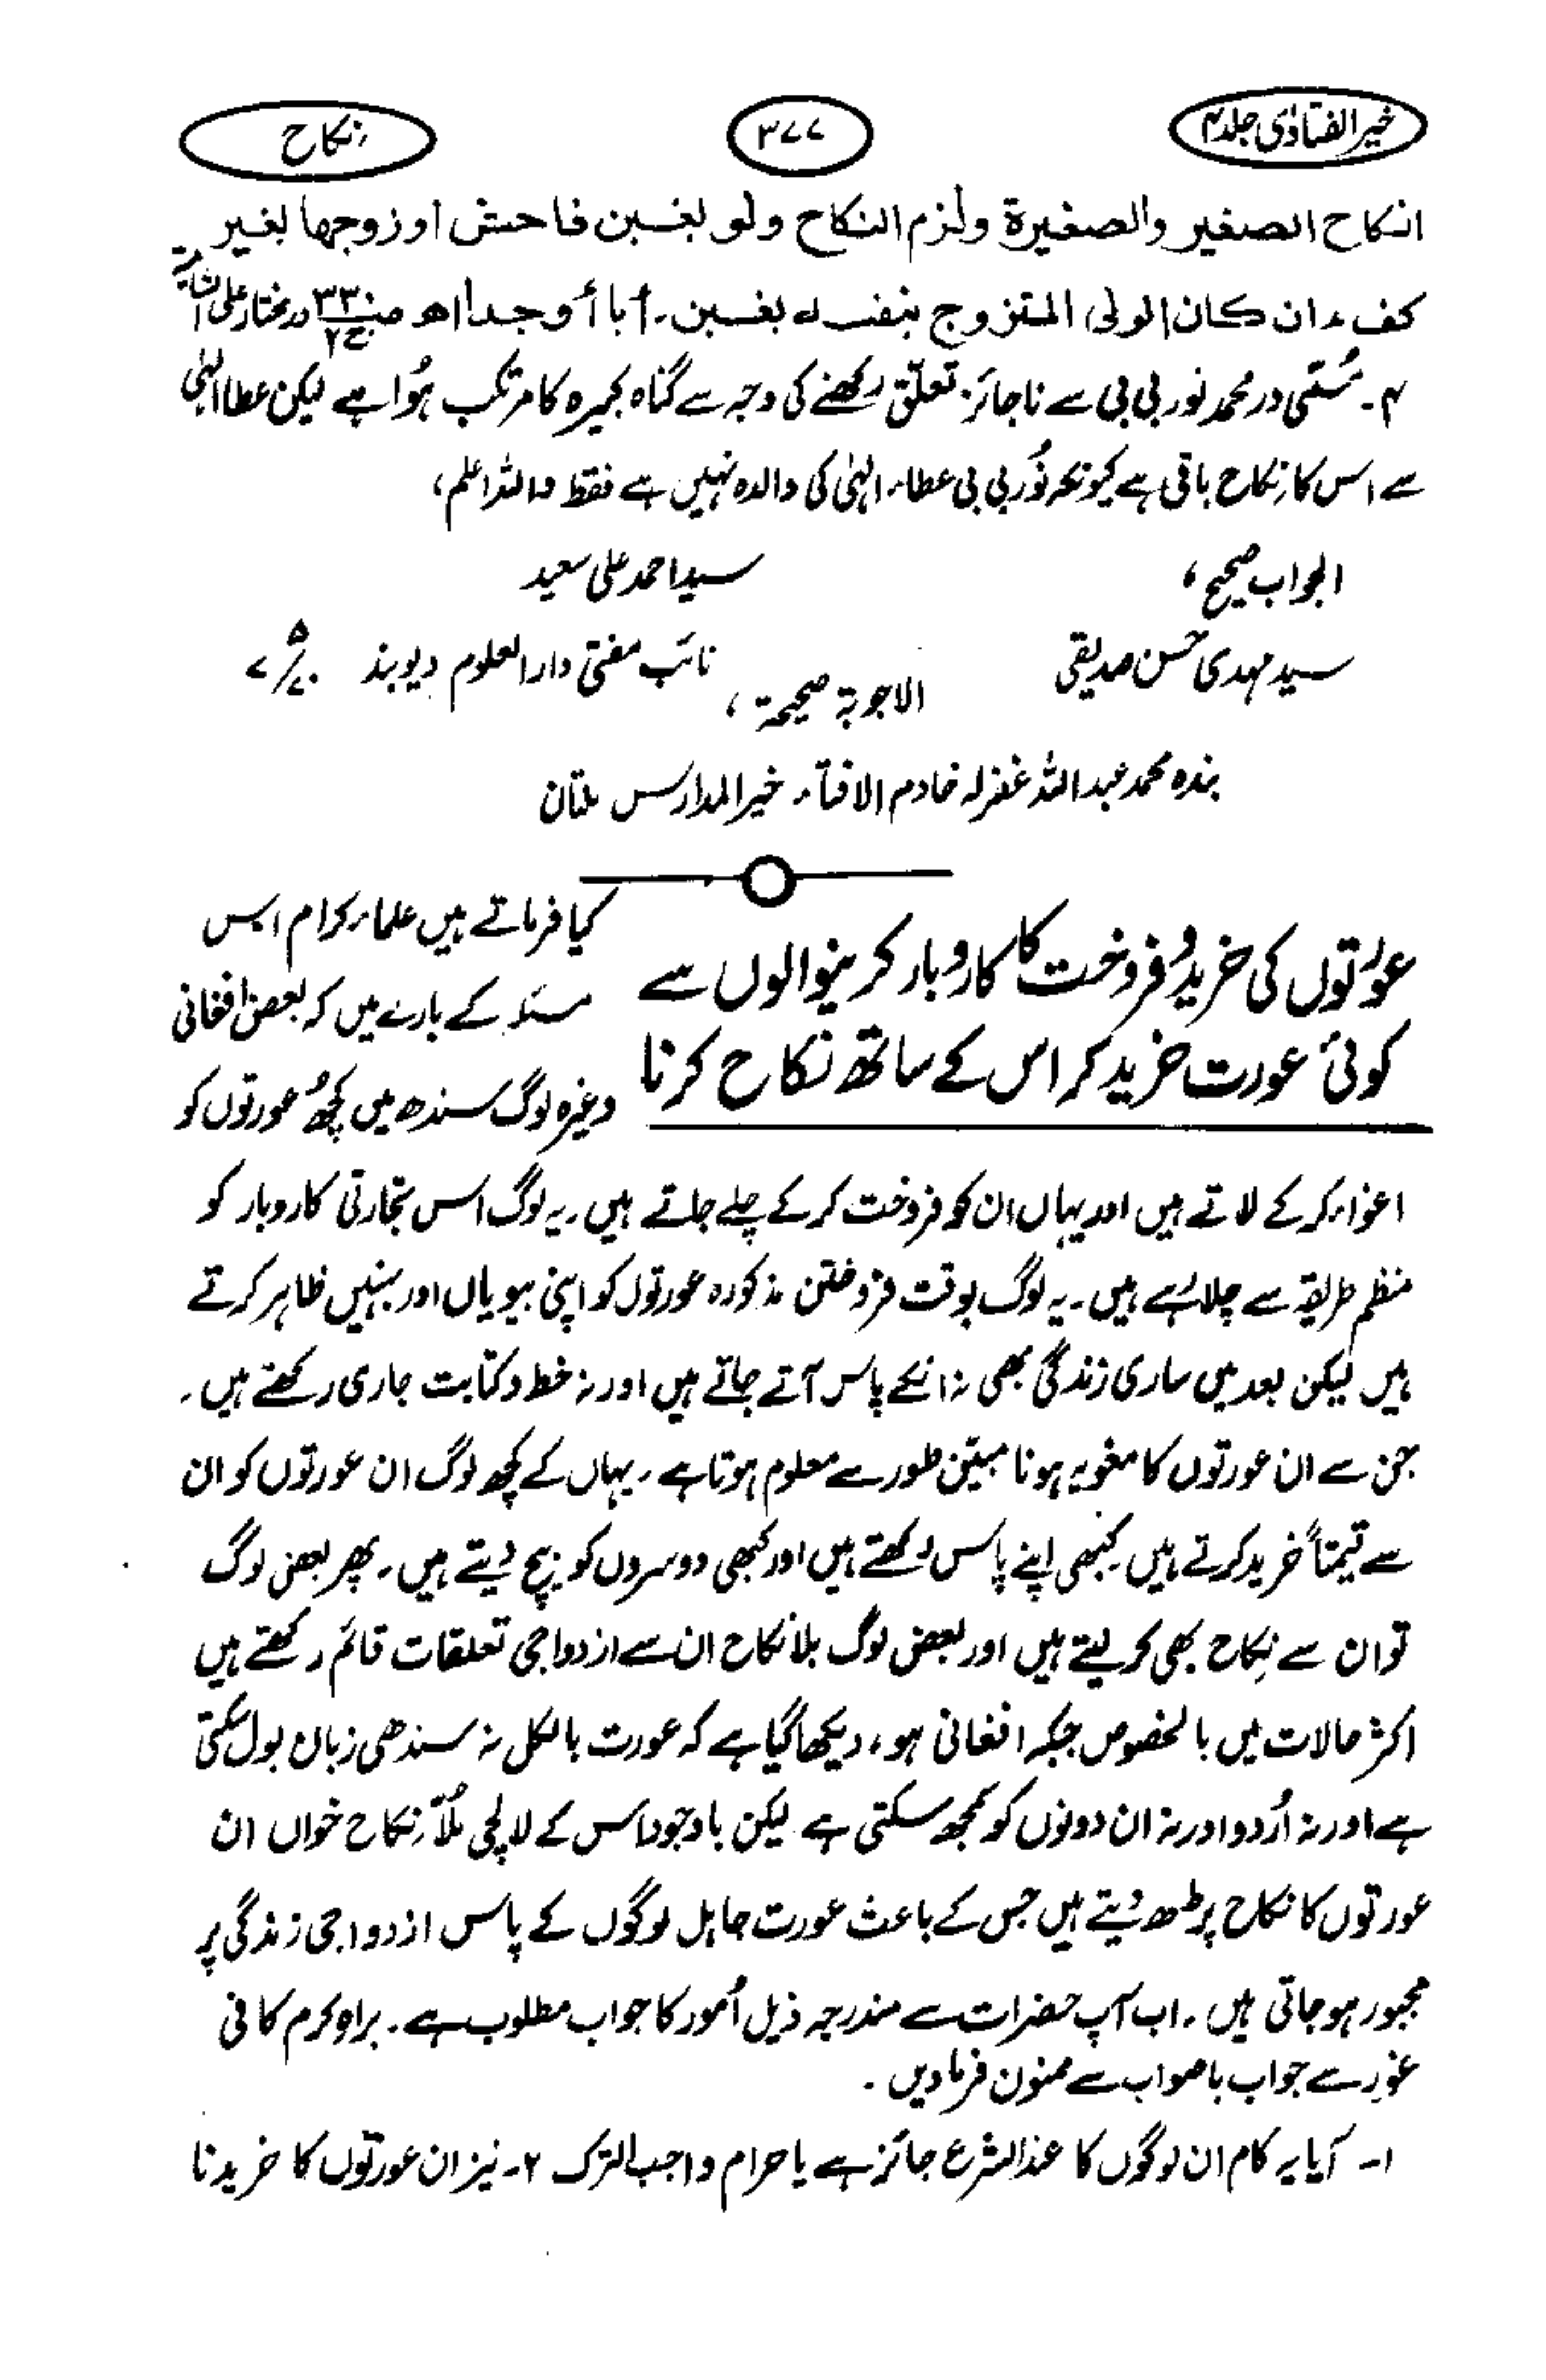 خیر الفتاوٰی جلد ۴
۳۷۷
نکاح
انکاح الصغیر والصغیرة ولزم النکاح ولو بغبن فاحش او زوجها بغیر
کفء ان کان الولی المتزوج بنفسه بغبن۔ أبا أو جدا اھ ص۳۳۰ ج۲ درمختار علی الشامیة
۴۔ مُسمّٰی در محمد نور بی بی سے ناجائز تعلّق رکھنے کی وجہ سے گناہ کبیرہ کا مرتکب ہُوا ہے لیکن عطا الٰہی
سے اس کا نکاح باقی ہے کیونکہ نُور بی بی عطاء الٰہی کی والدہ نہیں ہے فقط واللہ اعلم،
الجواب صحیح،
سید احمد علی سعید
سید مہدی حسن صدیقی
نائب مفتی دارالعلوم دیوبند
الاجوبة صحیحة،
بندہ محمد عبداللہ غفرلہ خادم الافتاء خیرالمدارس ملتان
عورتوں کی خرید و فروخت کا کاروبار کرنیوالوں سے
کوئی عورت خرید کر اس کے ساتھ نکاح کرنا
کیا فرماتے ہیں علماء کرام اس
مسئلہ کے بارے میں کہ بعض افغانی
وغیرہ لوگ سندھ میں کچھ عورتوں کو
اغواء کر کے لاتے ہیں اور یہاں ان کو فروخت کر کے چلے جاتے ہیں۔ یہ لوگ اس تجارتی کاروبار کو
منظم طریقہ سے چلا رہے ہیں۔ یہ لوگ بوقت فروختن مذکورہ عورتوں کو اپنی بیویاں اور بہنیں ظاہر کرتے
ہیں لیکن بعد میں ساری زندگی بھی نہ انکے پاس آتے جاتے ہیں اور نہ خط و کتابت جاری رکھتے ہیں۔
جن سے ان عورتوں کا مغویہ ہونا مبیّن طور سے معلوم ہوتا ہے۔ یہاں کے کچھ لوگ ان عورتوں کو ان
سے قیمتاً خرید کرتے ہیں۔ کبھی اپنے پاس رکھتے ہیں اور کبھی دوسروں کو بیچ دیتے ہیں۔ پھر بعض لوگ
تو ان سے نکاح بھی کر لیتے ہیں اور بعض لوگ بلا نکاح ان سے ازدواجی تعلقات قائم رکھتے ہیں
اکثر حالات میں بالخصوص جبکہ افغانی ہو، دیکھا گیا ہے کہ عورت بالکل نہ سندھی زبان بول سکتی
ہے اور نہ اُردو اور نہ ان دونوں کو سمجھ سکتی ہے لیکن باوجود اس کے لالچی مُلّا نکاح خواں ان
عورتوں کا نکاح پڑھ دیتے ہیں جس کے باعث عورت جاہل لوگوں کے پاس ازدواجی زندگی پر
مجبور ہو جاتی ہیں۔ اب آپ حضرات سے مندرجہ ذیل اُمور کا جواب مطلوب ہے۔ براہِ کرم کافی
غور سے جواب باصواب سے ممنون فرمادیں۔
۱۔ آیا یہ کام ان لوگوں کا عندالشرع جائز ہے یا حرام و واجب الترک ۲۔ نیز ان عورتوں کا خریدنا